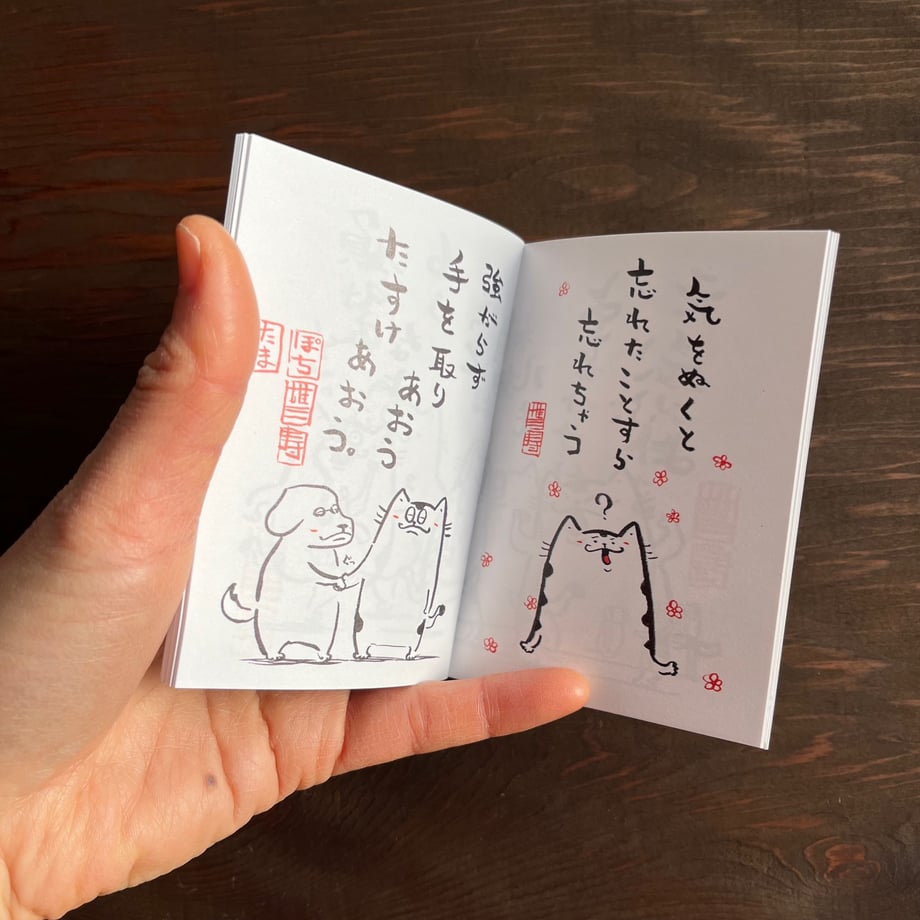 気をぬくと
忘れたことすら
忘れちゃう
?
強がらず
手を取り
あおう
たすけ
あおう。
ぽち
たま